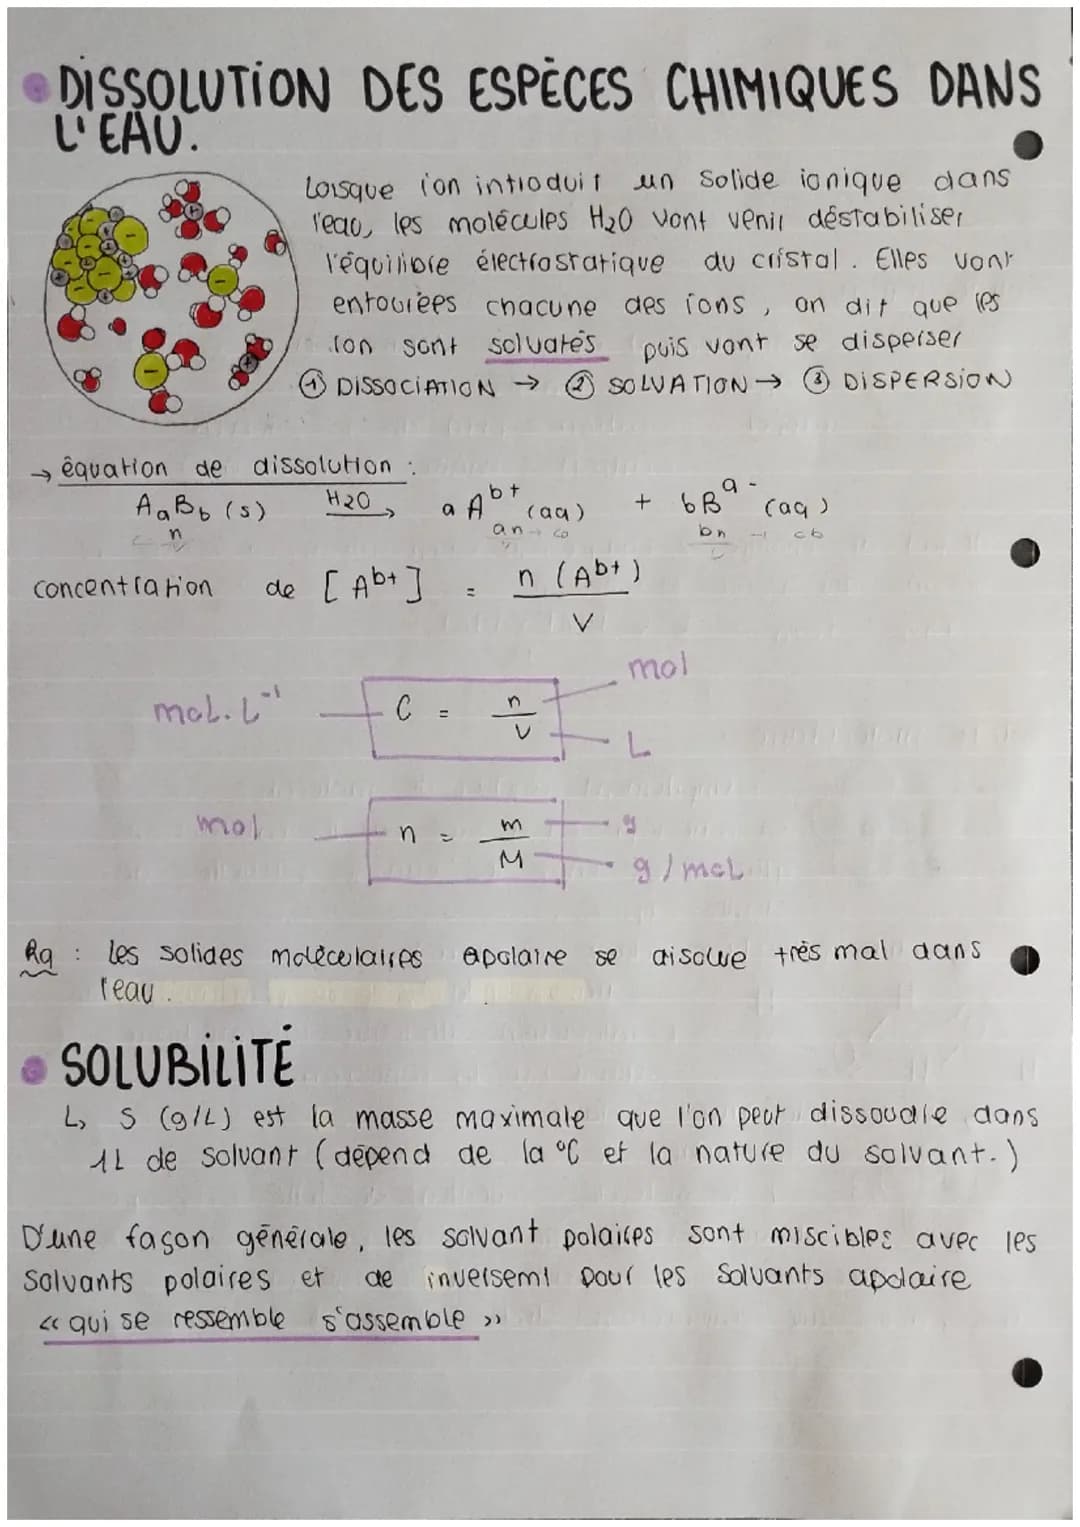 DISSOLUTION DES ESPÈCES CHIMIQUES DANS
L'EAU.
Lorsque l'on introduit un solide ionique dans
l'eau, les molécules H2O vont venir déstabiliser
l'équilibre électrostatique du cristal. Elles vont
entourées chacune des ions, on dit que les
ion sont solvatés puis vont se disperser
① DISSOCIATION → ② SOLVATION → ③ DISPERSION
→ équation de dissolution :
AaBb (s) H2O→ a A^b+ (aq) + bB^a- (aq)
n an bn
concentration de [A^b+] = n (A^b+) / V
mol.L^-1 C = n / V mol L
mol n = m / M g g/mol
Rq : les solides moléculaires apolaire se disolve très mal dans
l'eau.
SOLUBILITÉ
↳ S (g/L) est la masse maximale que l'on peut dissoudre dans
1L de solvant (dépend de la °C et la nature du solvant.)
D'une façon générale, les solvant polaires sont miscibles avec les
solvants polaires et de inversemt pour les solvants apolaire
<< qui se ressemble s'assemble >>